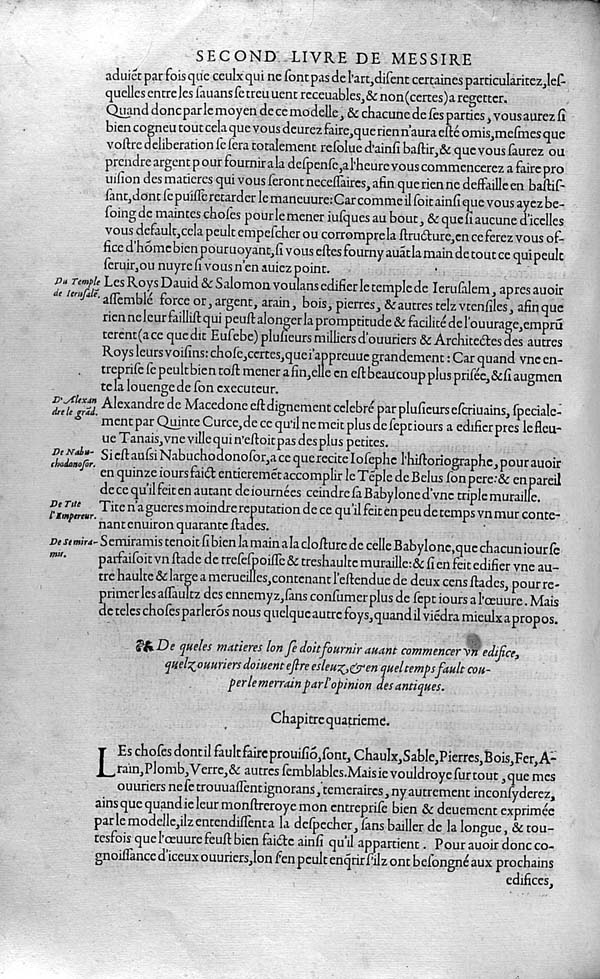 SECOND LIVRE DE MESSIRE
aduiẽt par fois que ceulx qui ne ſont pas de l'art, diſent certaines particularitez, leſ-
quelles entre les ſauans ſe treuuent receuables, & non (certes) a regetter.
Quand donc par le moyen de ce modelle, & chacune de ſes parties, vous aurez ſi
bien cogneu tout cela que vous deurez faire, que rien n'aura eſté omis, meſmes que
voſtre deliberation ſe ſera totalement reſolue d'ainſi baſtir, & que vous ſaurez ou
prendre argent pour fournir a la deſpenſe, a l'heure vous commencerez a faire pro
uiſion des matieres qui vous ſeront neceſſaires, afin que rien ne deffaille en baſtiſ-
ſant, dont ſe puiſſe retarder le maneuure: Car comme il ſoit ainſi que vous ayez be-
ſoing de maintes choſes pour le mener iuſques au bout, & que ſi aucune d'icelles
vous default, cela peult empeſcher ou corrompre la ſtructure, en ce ferez vous of-
fice d'hõme bien pouruoyant, ſi vous eſtes fourny auãt la main de tout ce qui peult
ſeruir, ou nuyre ſi vous n'en auiez point.
Du Temple
de Ieruſalẽ.
Les Roys Dauid & Salomon voulans edifier le temple de Ieruſalem, apres auoir
aſſemblé force or, argent, arain, bois, pierres, & autres telz vtenſiles, afin que
rien ne leur failliſt qui peuſt alonger la promptitude & facilité de l'ouurage, emprũ
terent (a ce que dit Euſebe) pluſieurs milliers d'ouuriers & Architectes des autres
Roys leurs voiſins: choſe, certes, que i'appreuue grandement: Car quand vne en-
trepriſe ſe peult bien toſt mener a fin, elle en eſt beaucoup plus priſée, & ſi augmen
te la louenge de ſon executeur.
D'Alexan
dre le grãd.
Alexandre de Macedone eſt dignement celebré par pluſieurs eſcriuains, ſpeciale-
ment par Quinte Curce, de ce qu'il ne meit plus de ſept iours a edifier pres le fleu-
ue Tanais, vne ville qui n'eſtoit pas des plus petites.
De Nabu-
chodonoſor.
Si eſt auſſi Nabuchodonoſor, a ce que recite Ioſephe l'hiſtoriographe, pour auoir
en quinze iours faict entieremẽt accomplir le Tẽple de Belus ſon pere: & en pareil
de ce qu'il feit en autant de iournées ceindre ſa Babylone d'vne triple muraille.
De Tite
l'Empereur.
Tite n'a gueres moindre reputation de ce qu'il feit en peu de temps vn mur conte-
nant enuiron quarante ſtades.
De Semira-
mis.
Semiramis tenoit ſi bien la main a la cloſture de celle Babylone, que chacun iour ſe
parfaiſoit vn ſtade de treſeſpoiſſe & treshaulte muraille: & ſi en feit edifier vne au-
tre haulte & large a merueilles, contenant l'eſtendue de deux cens ſtades, pour re-
primer les aſſaultz des ennemyz, ſans conſumer plus de ſept iours a l'œuure. Mais
de teles choſes parlerõs nous quelque autre foys, quand il viẽdra mieulx a propos.
De queles matieres lon ſe doit fournir auant commencer vn edifice,
quelz ouuriers doiuent eſtre esleuz, & en quel temps fault cou-
per le merrain par l'opinion des antiques.
Chapitre quatrieme.
LEs choſes dont il fault faire prouiſiõ, ſont, Chaulx, Sable, Pierres, Bois, Fer, A-
rain, Plomb, Verre, & autres ſemblables. Mais ie vouldroye ſur tout, que mes
ouuriers ne ſe trouuaſſent ignorans, temeraires, ny autrement inconſyderez,
ains que quand ie leur monſtreroye mon entrepriſe bien & deuement exprimée
par le modelle, ilz entendiſſent a la deſpecher, ſans bailler de la longue, & tou-
tesfois que l'œuure feuſt bien faicte ainſi qu'il appartient. Pour auoir donc co-
gnoiſſance d'iceux ouuriers, lon ſ'en peult enq̃rir ſ'ilz ont beſongné aux prochains
edifices,